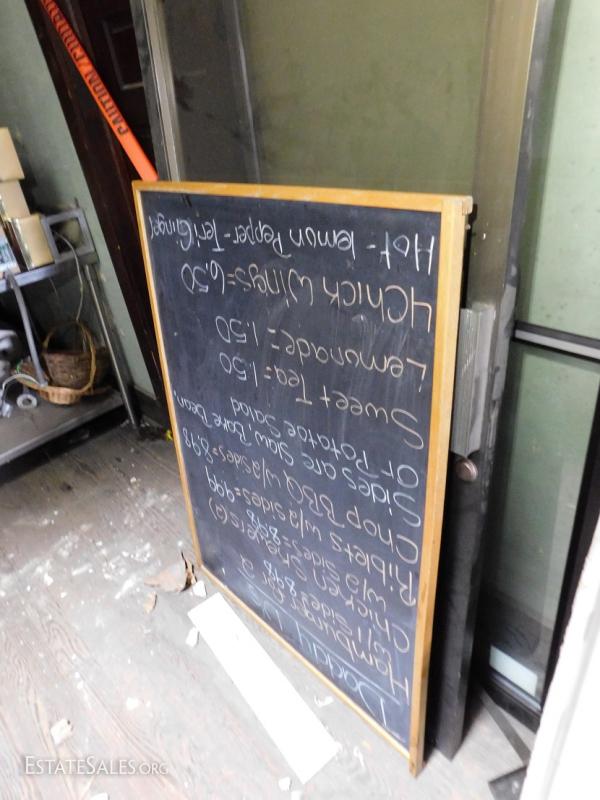 Daddy
Hamburger
w/1 side= 8.98
Chicken
w/2 sides= 8.98
Riblets w/2 sides= 9.99
Chop BBQ w/2 sides= 8.98
Sides are Slaw, Bake Bean,
or Potatoe Salad
Sweet Tea= 1.50
Lemonade= 1.50
4 Chick Wings= 6.50
Hot - lemon Pepper - Teri Ginger
CAUTION / CUIDADO
ESTATESALES.ORG